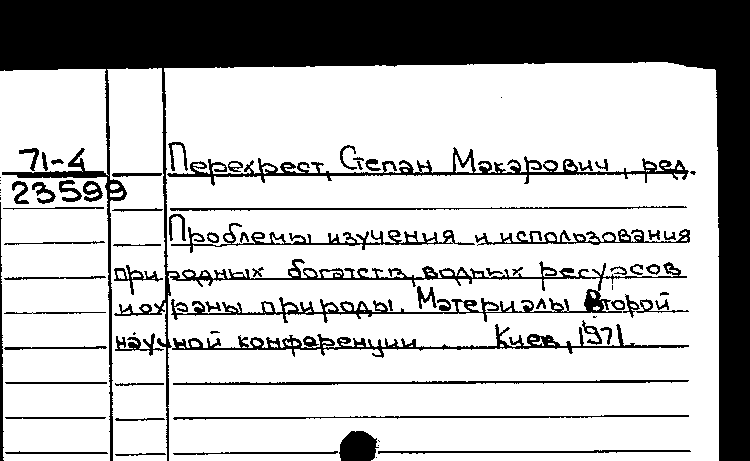 71-4
23599
Перехрест, Степан Макарович, ред.
Проблемы изучения и использования
природных богатств, водных ресурсов
и охраны природы. Материалы Второй
научной конференции ... Киев, 1971.